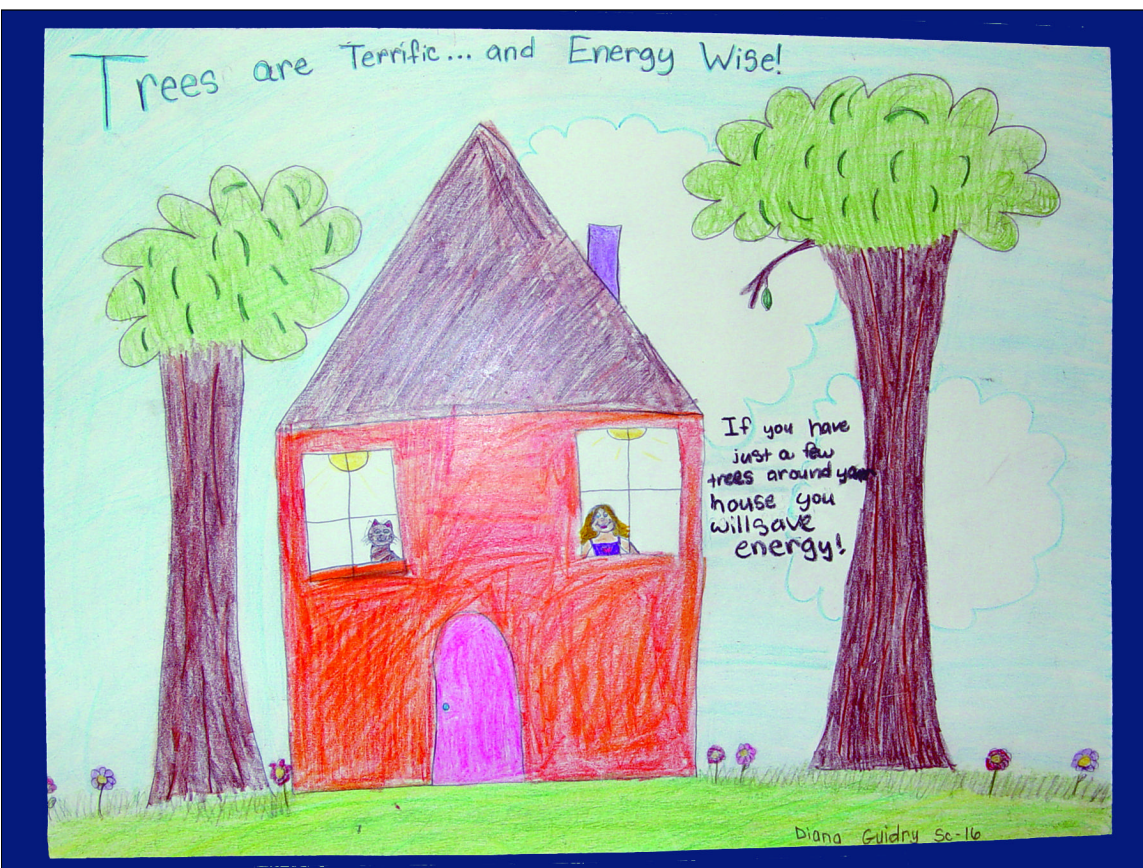 Trees are Terrific... and Energy Wise!
If you have
just a few
trees around your
house you
will save
energy!
Diana Guidry Sc-16